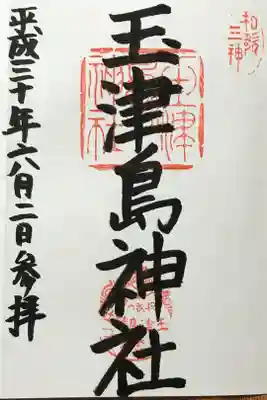 和歌三神
玉津島神社
平成三十年六月二日参拝